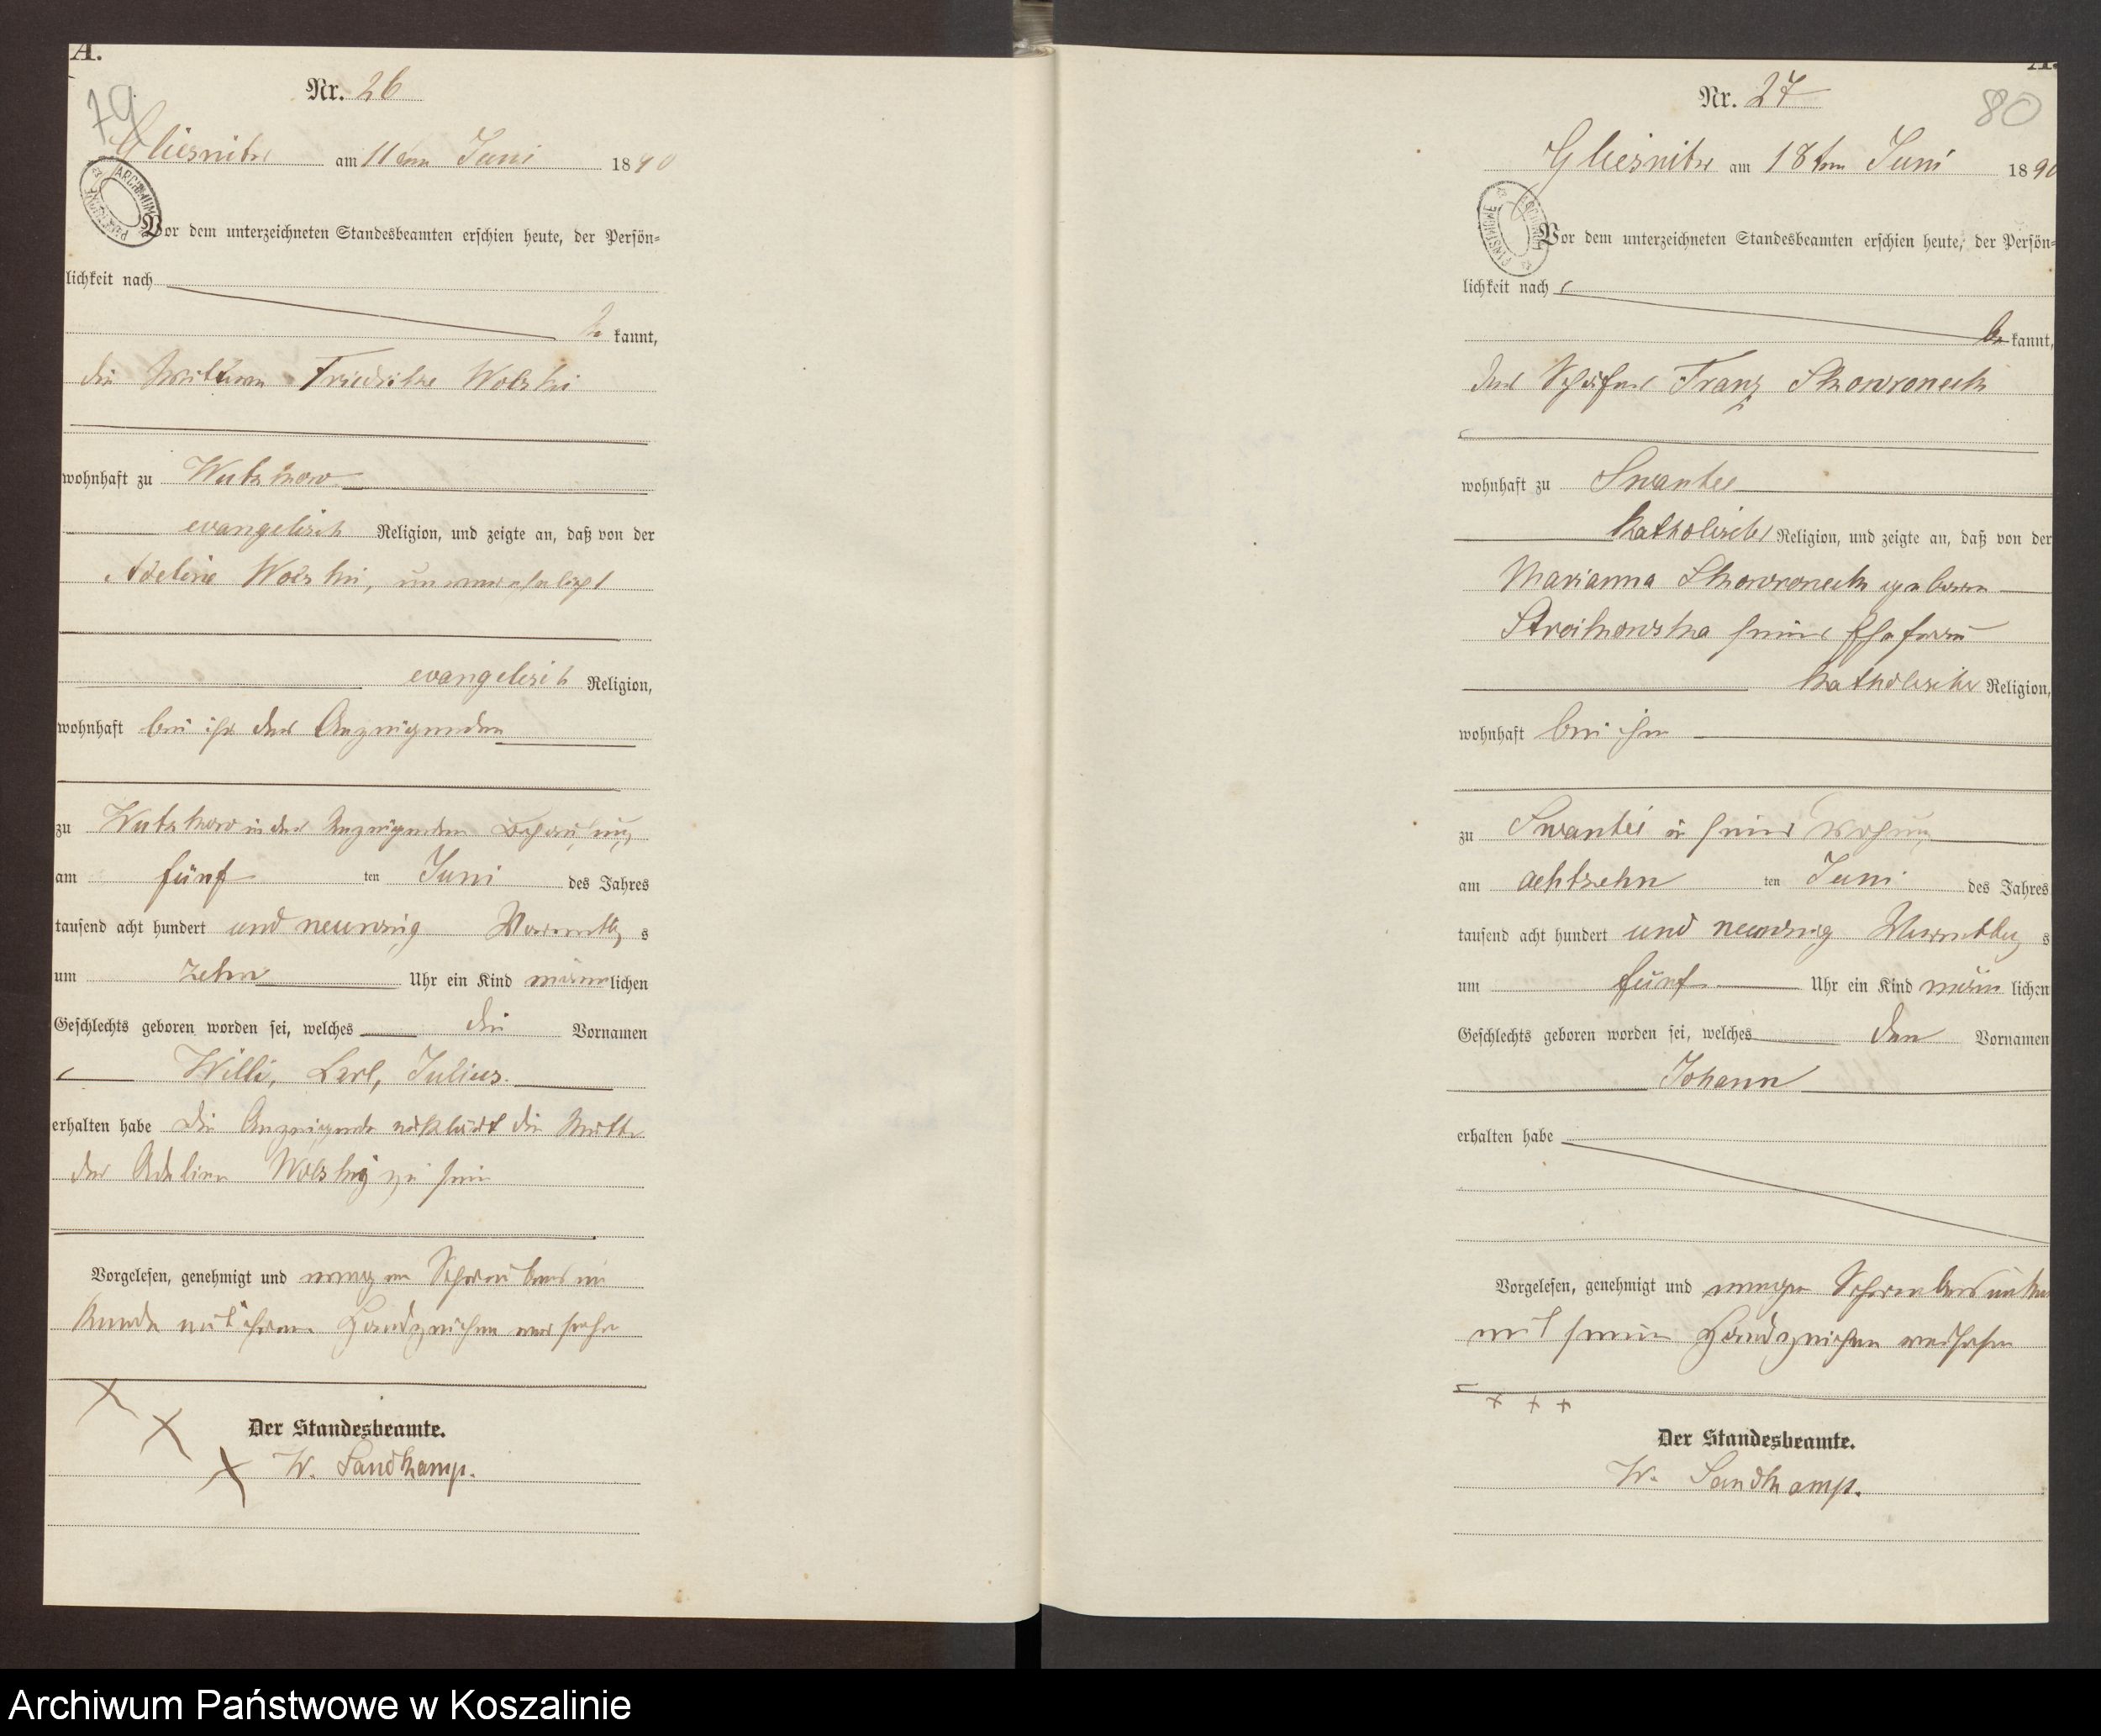 A.
79
Nr. 26
Gliesnitz am 11ten Juni 1890
ARCHIWUM PAŃSTWOWE
Vor dem unterzeichneten Standesbeamten erschien heute, der Persön=
lichkeit nach
be kannt,
die Wittwe Friedrike Wolski
wohnhaft zu Wutzkow
evangelisch Religion, und zeigte an, daß von der
Adeline Wolski, unverehelicht
evangelisch Religion,
wohnhaft bei ihr der Anzeigenden
zu Wutzkow in der Anzeigenden Behausung
am fünf ten Juni des Jahres
tausend acht hundert und neunzig Vormittag s
um zehn Uhr ein Kind männ lichen
Geschlechts geboren worden sei, welches die Vornamen
Willi, Carl, Julius.
erhalten habe Die Anzeigende erklärt die Mutter
der Adeline Wolski zu sein
Vorgelesen, genehmigt und wegen Schreibens un
kunde mit ihrem Handzeichen versehen
X X X
Der Standesbeamte.
W. Sandkamp.
A.
80
Nr. 27
Gliesnitz am 18ten Juni 1890
ARCHIWUM PAŃSTWOWE
Vor dem unterzeichneten Standesbeamten erschien heute, der Persön=
lichkeit nach
be kannt,
der Schäfer Franz Skowroneck
wohnhaft zu Swantee
katholischer Religion, und zeigte an, daß von der
Marianna Skowroneck geborene
Stroikowska seiner Ehefrau
katholischer Religion,
wohnhaft bei ihm
zu Swantei in seiner Wohnung
am achtzehn ten Juni des Jahres
tausend acht hundert und neunzig Vormittag s
um fünf Uhr ein Kind männ lichen
Geschlechts geboren worden sei, welches den Vornamen
Johann
erhalten habe
Vorgelesen, genehmigt und wegen Schreibens
mit seinem Handzeichen versehen
+ + +
Der Standesbeamte.
W. Sandkamp.
Archiwum Państwowe w Koszalinie